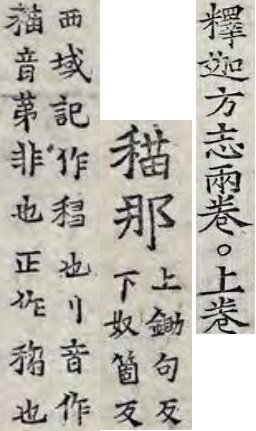 釋迦方志兩卷。上卷
那
上鋤句反
下奴箇反
西域記作也川音作
音苐非也正作也